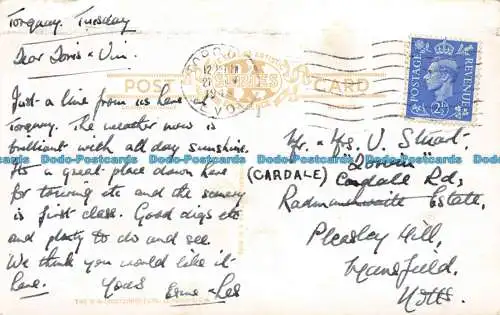 Torquay. Tuesday
Dear Doris & Vin.
Just a line from us here at
Torquay. The weather now is
brilliant with all day sunshine.
It's a great place down here
for touring etc and the scenery
is first class. Good digs etc
and plenty to do and see.
We think you would like it
here. Yours
Les
POST CARD
SERIES
12 15 PM
POSTAGE
REVENUE
2½D
Mr. & Mrs. V. Stuart.
(CARDALE) Cardale Rd,
Estate,
Pleasley Hill,
Mansfield.
Notts.
Dodo-Postcards Dodo-Postcards Dodo-Postcards Dodo-Postcards